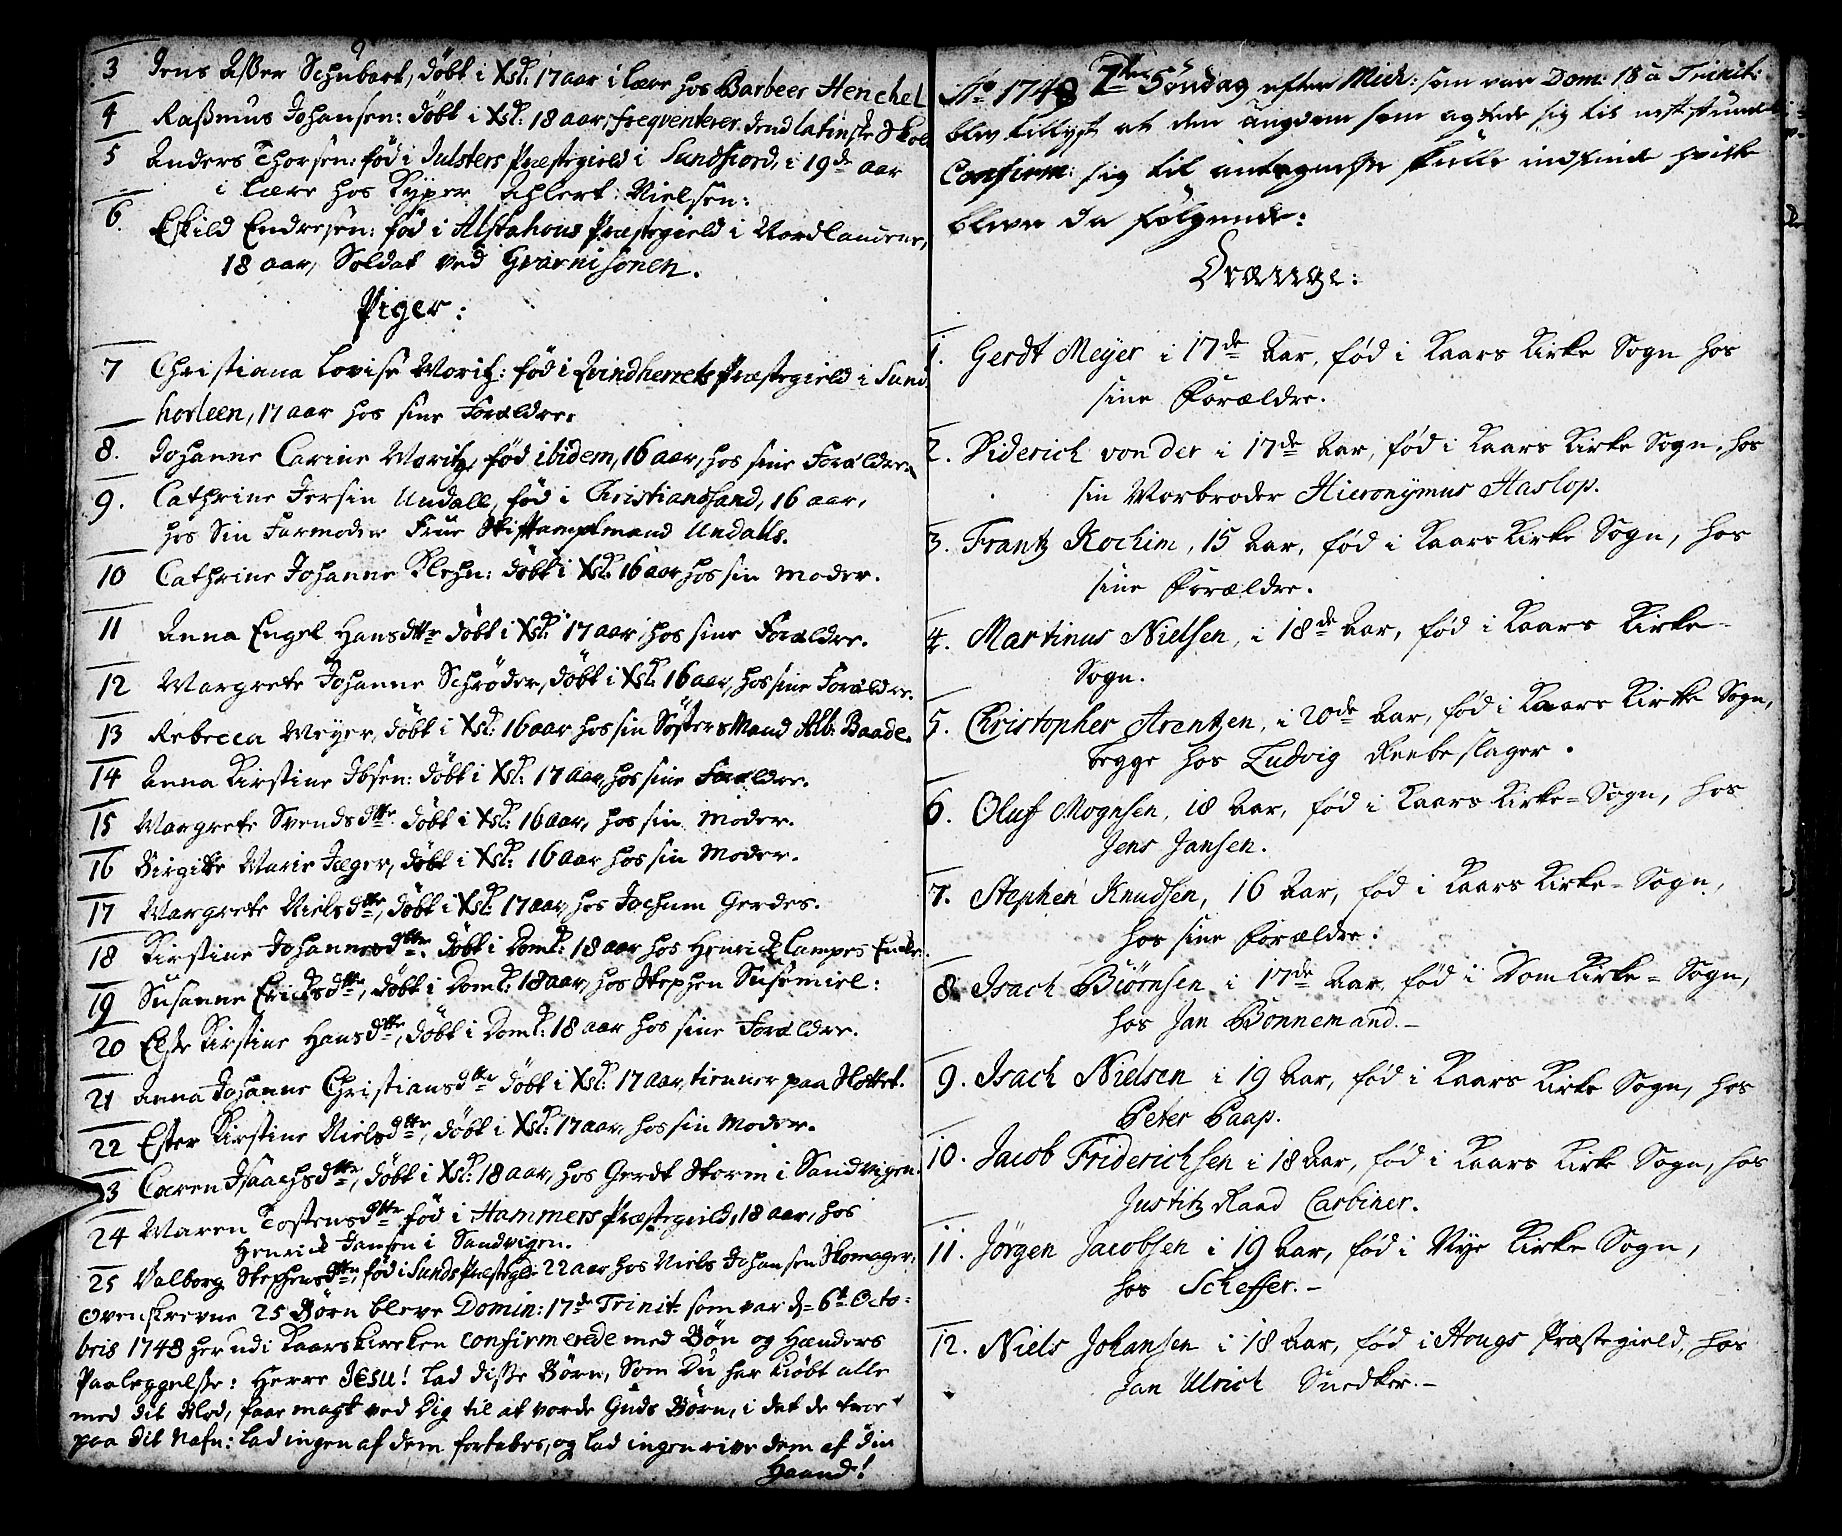 3 Jens Asser Schubart, døbt i Xsk: 17 aar i lære hos Barbeer Henchel
4 Rasmus Johansen: døbt i Xsk: 18 aar, freqventerer dend latinske Skole
5 Anders Thorsen: fød i Julsters Præstegield i Sundfiord, i 19de aar
i Lære hos Kyper Ehlert Nielsen:
6. Eskild Endresen: fød i Alstahous Præstegield i Nordlandene,
18 aar, Soldat ved Gvarnisonen.
Piger:
7 Christiana Lovise Moritz: fød i Qvindherrets Præstegield i Sund
horleen, 17 aar hos sine Forældre.
8. Johanne Carine Moritz, fød ibidem, 16 aar, hos sine Forældre.
9. Cathrine Jersin Undall, fød i Christiansand, 16 aar,
hos Sin Farmoder Frue Stiftamptmand Undalls.
10 Cathrine Johanne Klehn: døbt i Xsk: 16 aar hos sin Moder.
11 Anna Engel Hansdttr døbt i Xsk: 17 aar hos sine Forældre.
12 Margrete Johanne Schrøder, døbt i Xsk: 16 aar, hos sine Forældre.
13 Rebecca Meyer, døbt i Xsk: 16 aar hos sin Søsters Mand Alb: Baade.
14 Anna Kirstine Ibsen: døbt i Xsk: 17 Aar, hos sine Forældre.
15 Margrete Svendsdttr døbt i Xsk: 16 aar, hos sin Moder.
16 Birgitte Marie Jæger, døbt i Xsk: 16 Aar hos sin Moder.
17 Margrete Nielsdttr, døbt i Xsk 17 aar hos Jochum Gerdes.
18 Kirstine Johannesdttr: døbt i Domk: 18 aar hos Henrick Lampes Enke.
19 Susanne Ericksdttr, døbt i Domk: 18 aar, hos Stephen Susemiel:
20 Else Kirstine Hansdttr, døbt i Domk: 18 aar hos sine Forældre.
21 Anna Johanne Christiansdttr døbt i Xsk: 17 Aar, tienner paa Slottet.
22 Ester Kirstine Nielsdttr, døbt i Xsk: 17 aar, hos sin Moder.
23 Caren Isaachsdttr, døbt i Xsk: 18 aar, hos Gerdt Storm i Sandvigen.
24 Maren Tostensdttr fød i Hammers Præstegield, 18 aar, hos
Henrick Janson i Sandvigen.
25 Valborg Stephensdttr, fød i Sunds Præstegield 22 aar hos Niels Johansen Skomager,
Ovenskrevne 25 Børn bleve Domin: 17de Trinit: som var d= 6te Octo=
bris 1748 her udi Kaarskircken Confirmerede med Bøn og Hænders
Paaleggelse: Herre Jesu! lad disse Børn, Som Du har kiøbt alle
med dit Blod, faae magt ved Dig til at vorde Guds Børn, i det de troe
paa dit Nafn: lad ingen af dem fortabes, og lad ingen rive dem af din
Haand!
Ao 1748 2den Søndag efter Mich: som var Dom: 18 a Trinit:
blev tillyst at den ungdom som agtede sig til nestkundt
Confirm: sig til antegnelse skulle indfinde hvilke
bleve da følgende:
Drænge:
1. Gerdt Meyer i 17de Aar, fød i Kaars Kirke Sogn hos
sine Forældre.
2. Diderich von der i 17de Aar, fød i Kaars Kirke Sogn, hos
sin Morbroder Hieronÿmus Haslop.
3. Frantz Kochim, 15 Aar, fød i Kaars Kirke Sogn, hos
sine Forældre.
4. Martinus Nielsen, i 18de Aar, fød i Kaars Kirke
Sogn.
5. Christopher Arentzen, i 20de Aar, fød i Kaars Kirke Sogn,
begge hos Ludvig Reebeslager.
6. Oluf Mognsen, 18 Aar, fød i Kaars Kirke=Sogn, hos
Jens Jansen.
7. Stephen Knudsen, 16 Aar, fød i Kaars Kirke=Sogn,
hos sine Forældre.
8. Isach Biørnsen i 17de Aar, fød i Dom Kirke=Sogn,
hos Jan Bonnemand.
9. Isach Nielsen i 19 Aar, fød i Kaars Kirke Sogn, hos
Peter Paap.
10. Jacob Friderichsen i 18 Aar, fød i Kaars Kirke Sogn, hos
Justitz Raad Carbiner.
11. Jørgen Jacobsen i 19 Aar, fød i Nye Kirke Sogn,
hos Scheffer.
12. Niels Johansen i 18 Aar, fød i Hougs Præstegield, hos
Jan Ulrich Snedker.